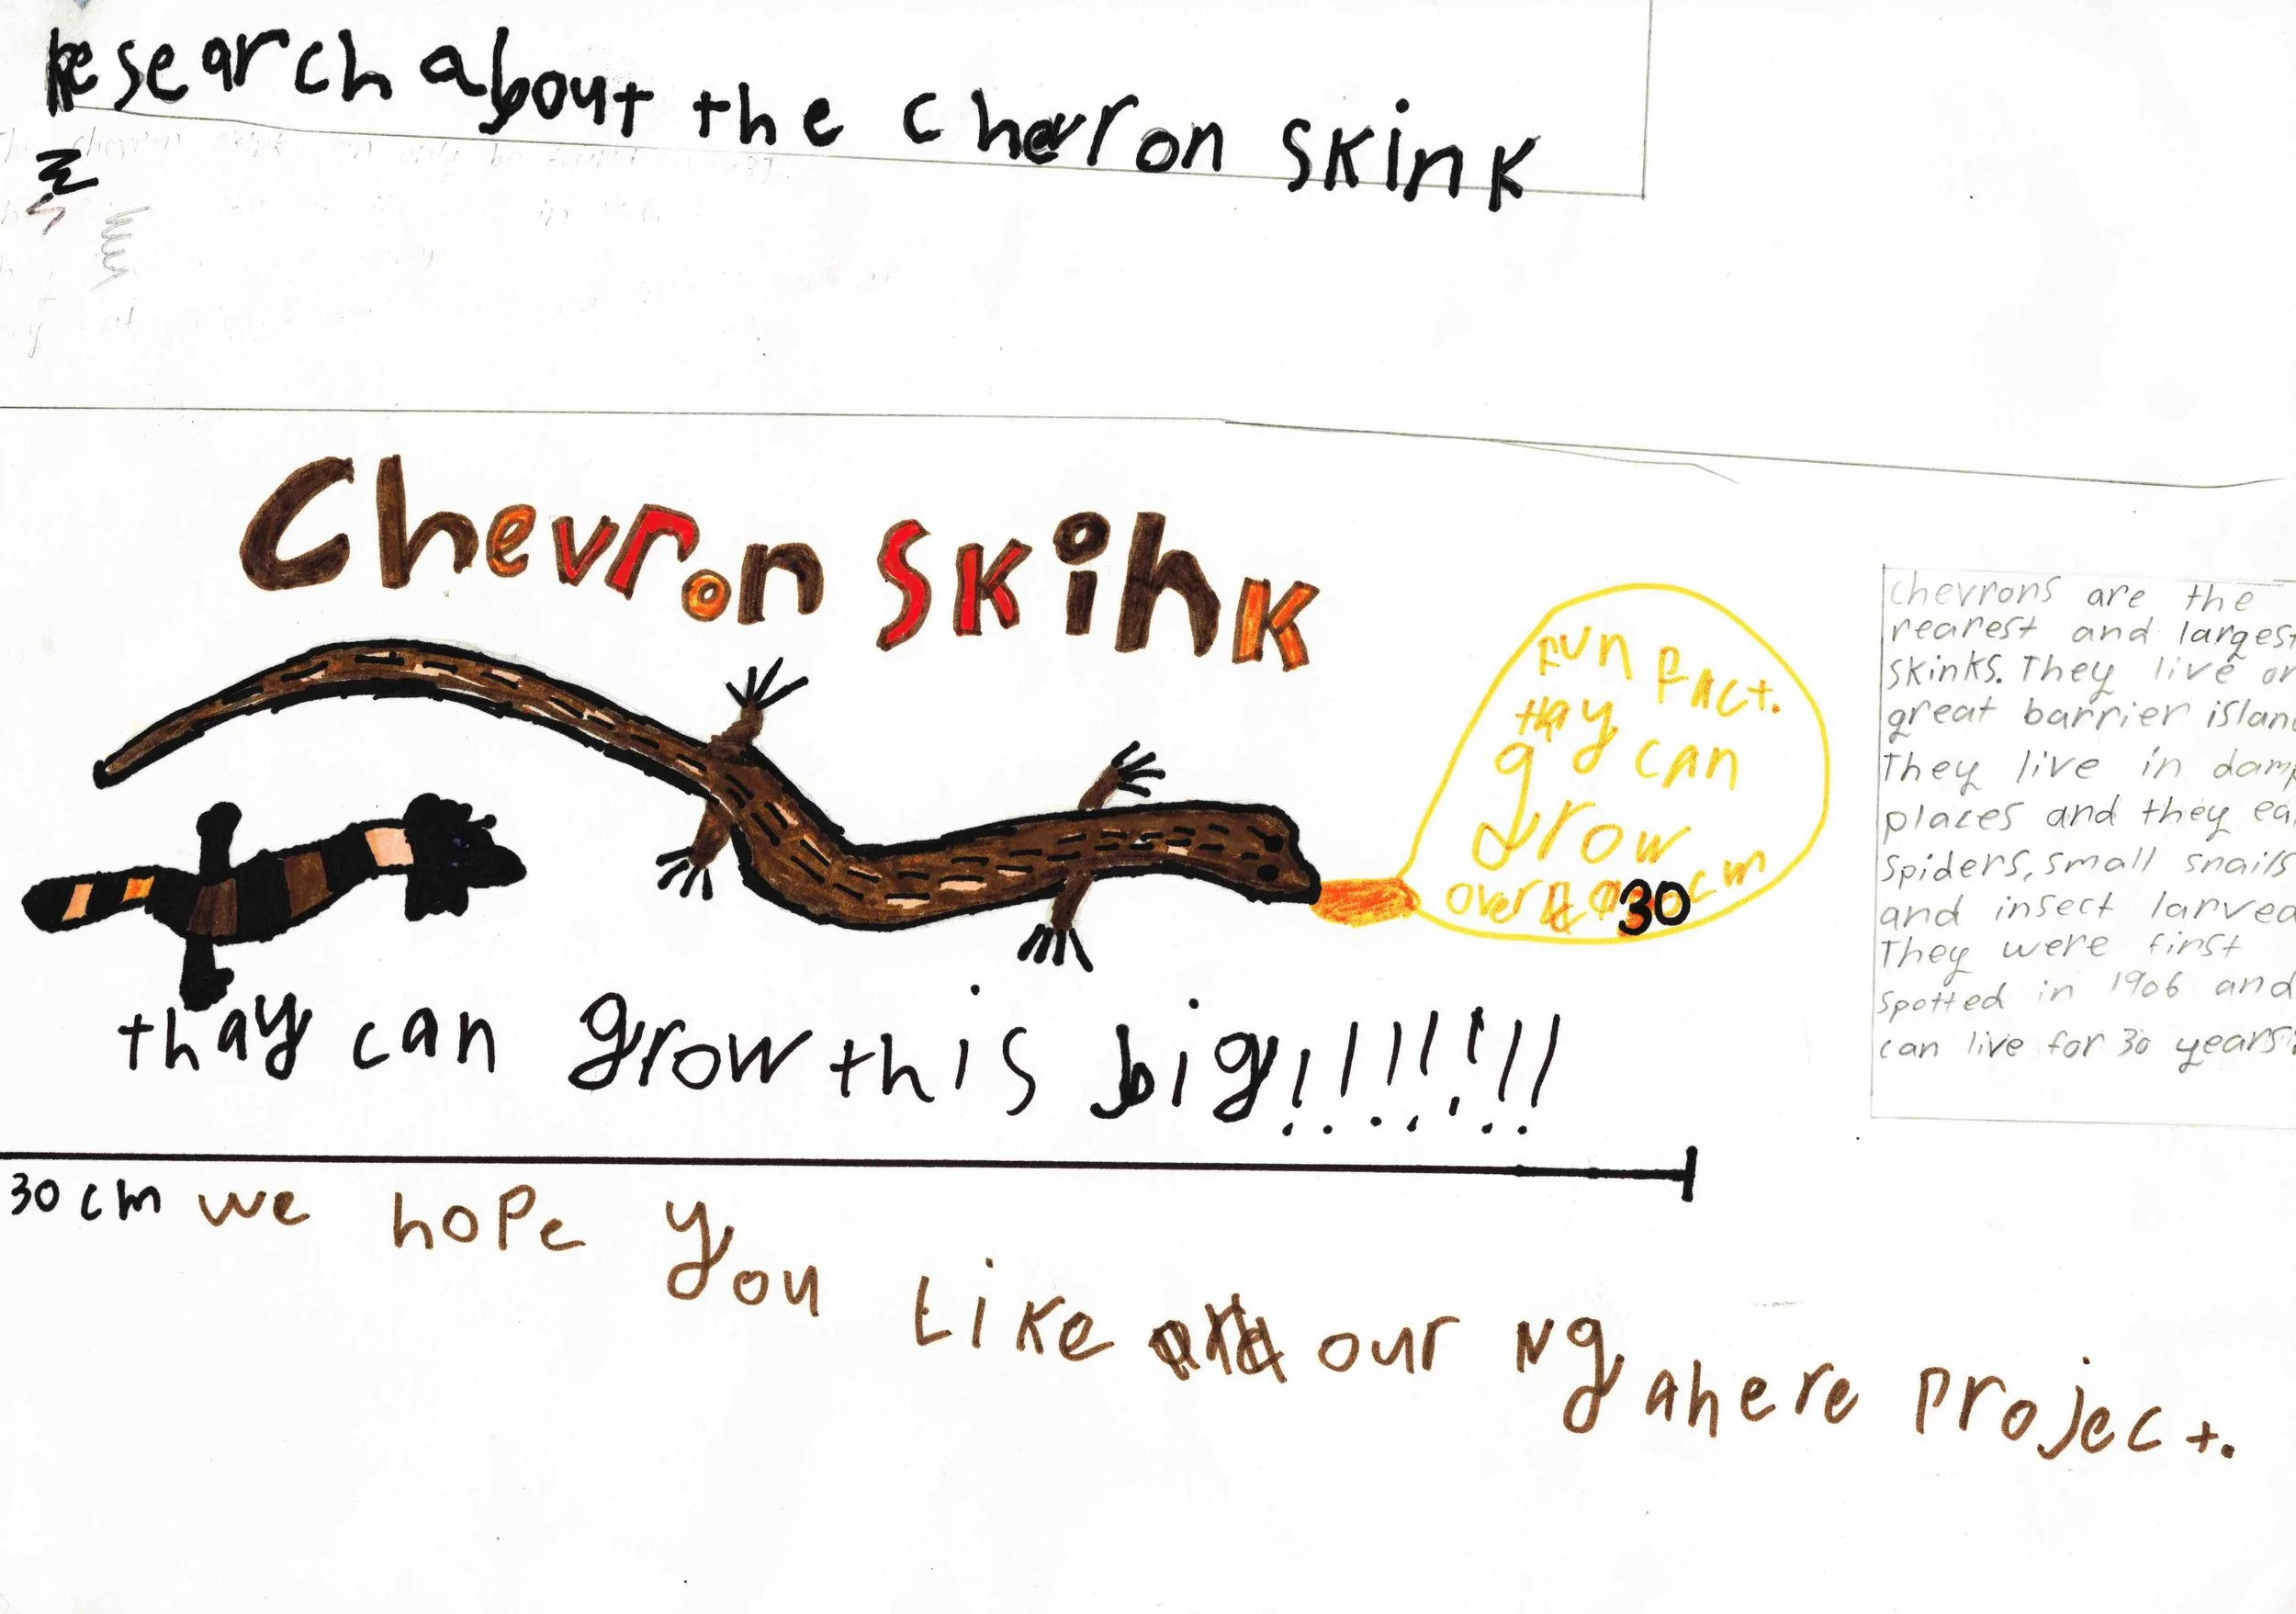 Research about the chevron skink
chevron can only be found
Chevron Skink
Fun Fact.
thay can
grow
over 30 cm
chevrons are the
rearest and largest
skinks. They live
great barrier
They live in
places and they
spiders, small snails
and insect
They were first
spotted in 1906 and
can live for 30 years
thay can grow this big!!!!!!!
30 cm
we hope you Like our Ngahere project.